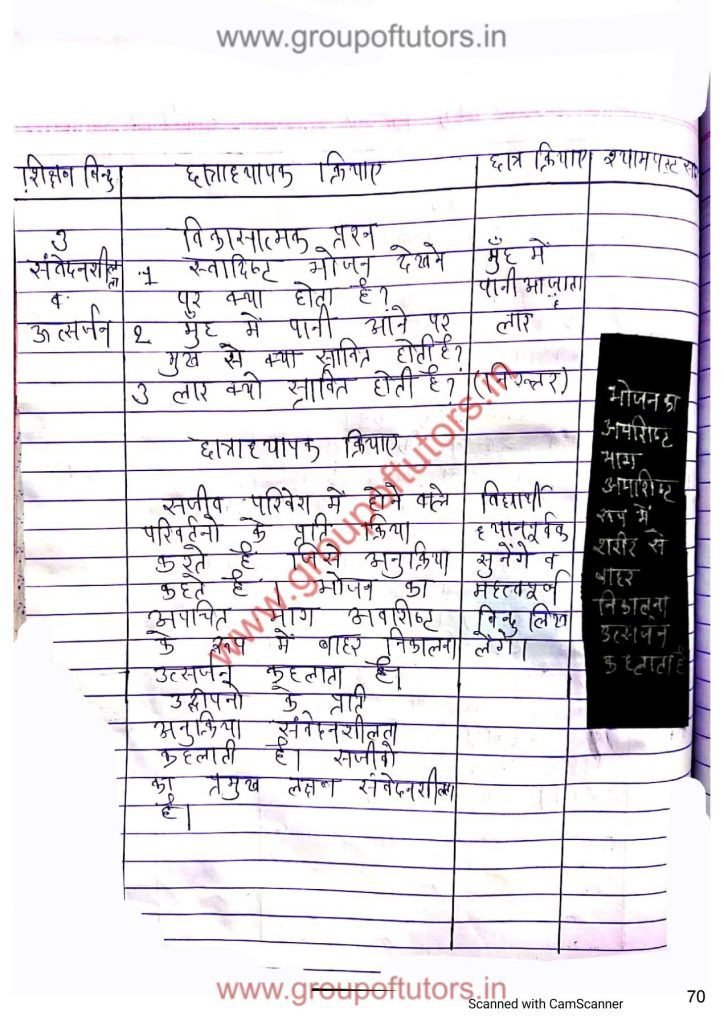 www.groupoftutors.in
शिक्षण बिन्दु
छात्राध्यापक क्रियाए
छात्र क्रियाए
श्यामपट्ट
3
संवेदनशीलता
व
उत्सर्जन
विकासात्मक प्रश्न
1 स्वादिष्ट भोजन देखने
पर क्या होता है?
2 मुह में पानी आने पर
मुख से क्या स्रावित होती है?
3 लार क्यो स्रावित होती है?
मुँह में
पानी आ जाता
है
लार
(निरुत्तर)
छात्राध्यापक क्रियाए
सजीव परिवेश में होने वाले
परिवर्तनो के प्रति क्रिया
करते हैं जिसे अनुक्रिया
कहते है । भोजन का
अपाचित भाग अवशिष्ट
के रूप में बाहर निकालना
उत्सर्जन कहलाता है।
उद्दीपनो के प्रति
अनुक्रिया संवेदनशीलता
कहलाती है। सजीवो
का प्रमुख लक्षण संवेदनशीलता
है।
विद्यार्थी
ध्यानपूर्वक
सुनेंगे व
महत्वपूर्ण
बिन्दु लिख
लेंगे।
भोजन का
अपशिष्ट
भाग
अपशिष्ट
रूप में
शरीर से
बाहर
निकालना
उत्सर्जन
कहलाता है
www.groupoftutors.in
www.groupoftutors.in
Scanned with CamScanner
70